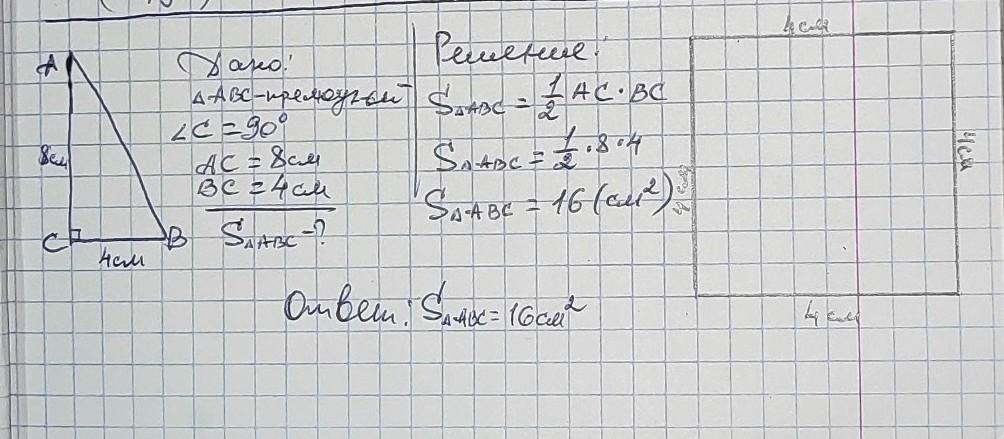 A
8см
C
B
4см
Дано:
△ABC-прямоугой
∠C = 90°
AC = 8см
BC = 4см
S△ABC - ?
Решение:
S△ABC = 1/2 AC · BC
S△ABC = 1/2 · 8 · 4
S△ABC = 16 (см²)
Ответ: S△ABC = 16см²
4см
4см
4см
4см